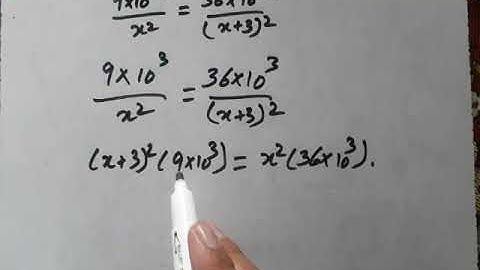 9×10 / x² = 36×10 / (x+3)²
9×10³ / x² = 36×10³ / (x+3)²
(x+3)²(9×10³) = x²(36×10³).